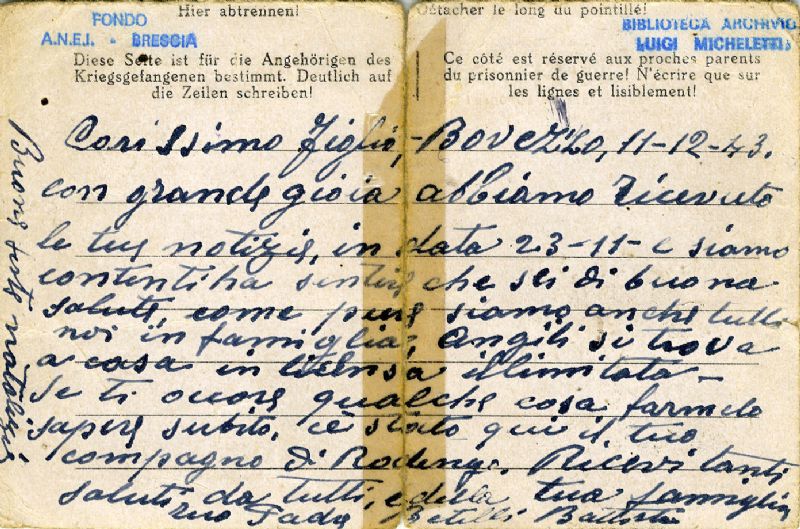 Hier abtrennen!
Détacher le long du pointillé!
FONDO
A.N.E.I. - BRESCIA
BIBLIOTECA ARCHIVIO
LUIGI MICHELETTI
Diese Seite ist für die Angehörigen des
Kriegsgefangenen bestimmt. Deutlich auf
die Zeilen schreiben!
Ce côté est réservé aux proches parents
du prisonnier de guerre! N'écrire que sur
les lignes et lisiblement!
Carissimo figlio, - BOVEZZO, 11-12-43.
con grande gioia abbiamo ricevuto
le tue notizie, in data 23-11- e siamo
contenti ha sentire che sei di buona
salute come pure siamo anche tutti
noi in famiglia, Angili si trova
a casa in licensa illimitata -
Se ti ocore qualche cosa farmelo
sapere subito, cè stato qui il tuo
compagno di Rodengo. Ricevi tanti
saluti da tutti, e della tua famiglia
tuo Padre Battista
Buone feste natalizie